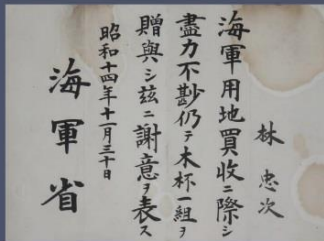 林忠次
海軍用地買收ニ際シ
盡力不尠仍テ木杯一組ヲ
贈與シ茲ニ謝意ヲ表ス
昭和十四年十一月三十日
海軍省